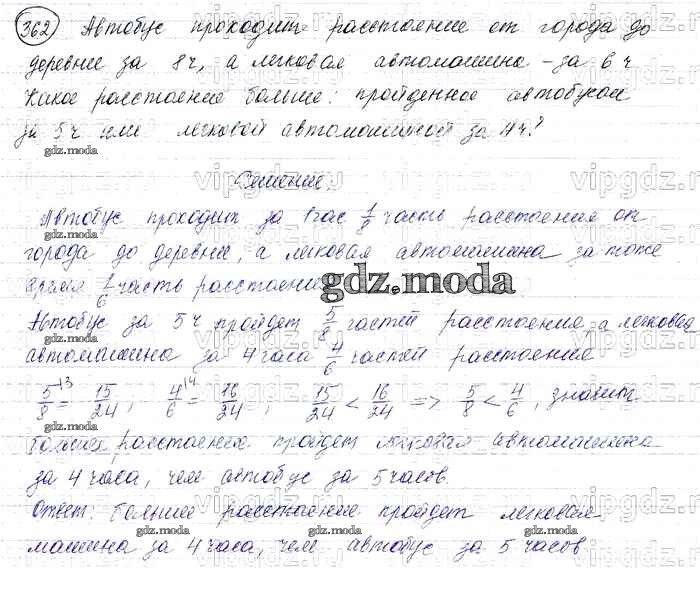 362 Автобус проходит расстояние от города до
деревне за 8ч, а легковая автомашине – за 6 ч
Какое расстояние больше: пройденное автобусом
за 5 ч или легковой автомашиной за 4ч?
gdz.moda
Решение.
Автобус проходит за 1час 1/8 часть расстояния от
города до деревни, а легковая автомашина за тоже
время 1/6 часть расстояние
gdz.moda
Автобус за 5ч пройдет 5/8 частей расстояния а легковая
автомашина за 4 часа 4/6 частей расстояния
5/8 ^13 = 15/24 ; 4/6 ^14 = 16/24 ; 15/24 < 16/24 => 5/8 < 4/6 , значит
большее расстояние пройдет легковая автомашина
за 4 часа, чем автобус за 5 часов.
Ответ: большее расстояние пройдет легковая
gdz.moda
машина за 4 часа, чем автобус за 5 часов
gdz.moda
vipgdz.com